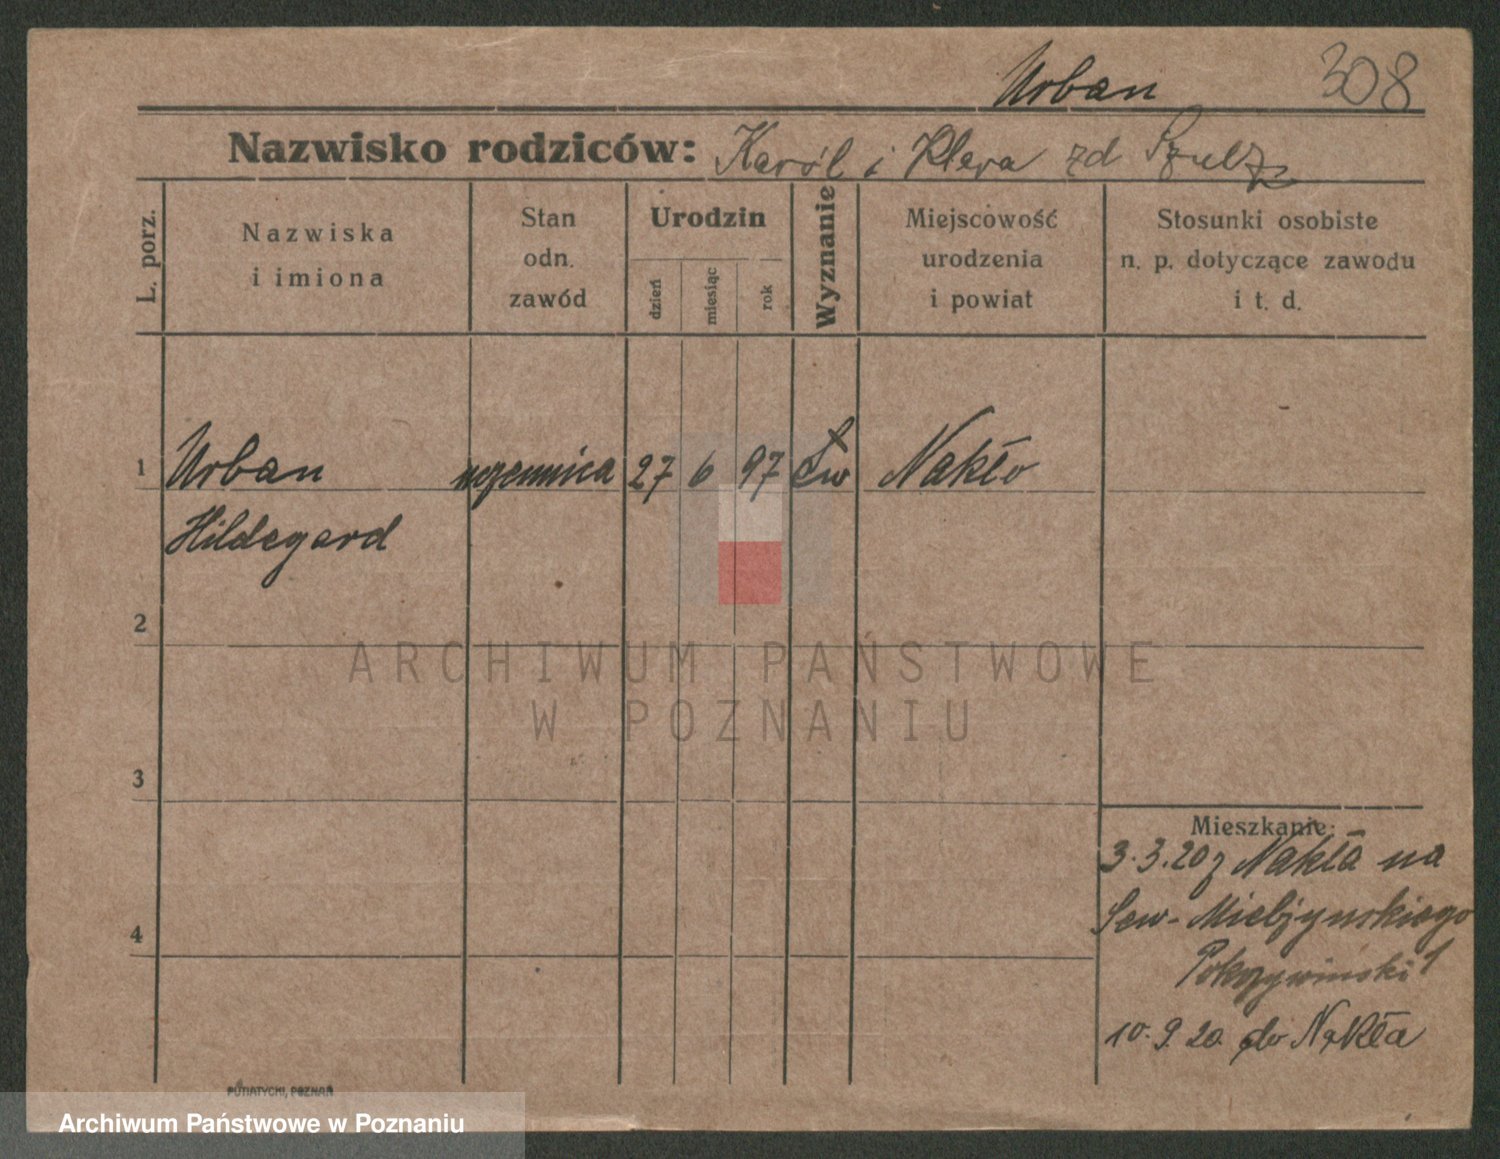 Urban 308
Nazwisko rodziców: Karól i Klara zd Szulz
L. porz.
Nazwiska
i imiona
Stan
odn.
zawód
Urodzin
dzień
miesiąc
rok
Wyznanie
Miejscowość
urodzenia
i powiat
Stosunki osobiste
n. p. dotyczące zawodu
i t. d.
1 Urban 27 6 97 Ew Nakło
Hildegard
2
3
4
Mieszkanie:
3.3.20 z Nakła na
Sew-Mielżynskiego
Pokrzywinski 1
10.9.20. do Nakła
PUTIATYCKI, POZNAŃ
ARCHIWUM PAŃSTWOWE
W POZNANIU
Archiwum Państwowe w Poznaniu